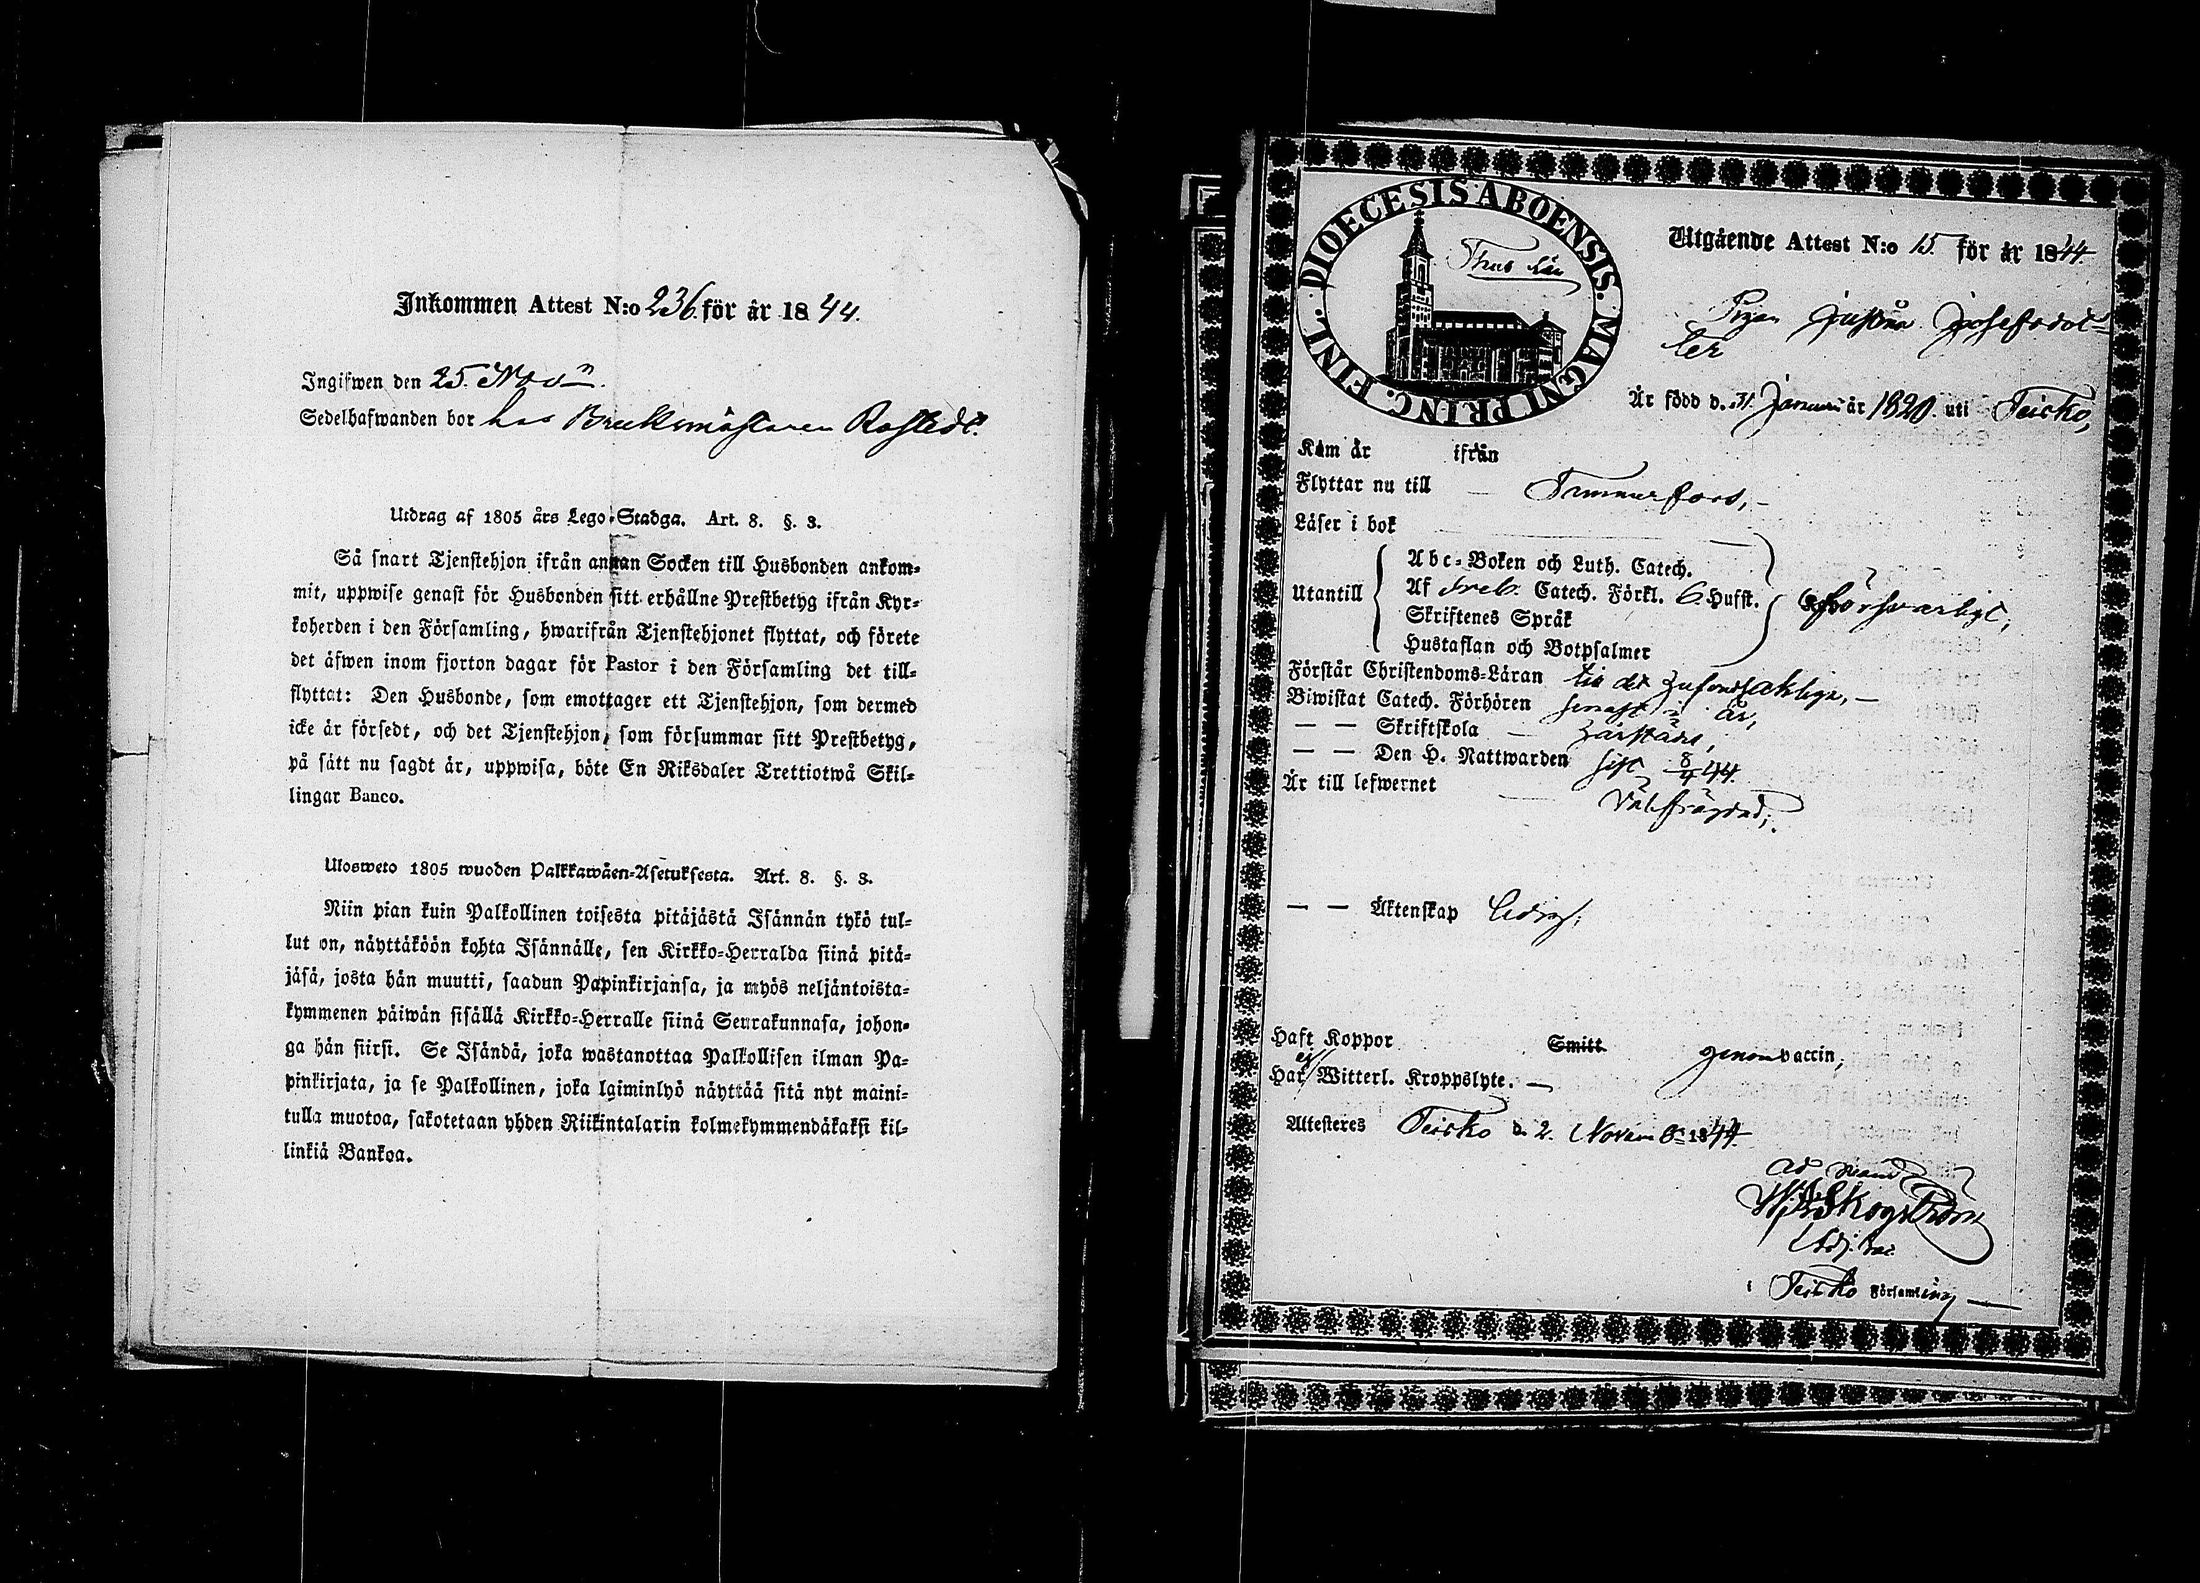 Inkommen Attest N:o 236. för år 1844.
Ingifwen den 25. Novn.
Sedelhafwanden bor hos Bruksmästaren Rostedt.
Utdrag af 1805 års Lego-Stadga. Art. 8. §. 3.
Så snart Tjenstehjon ifrån annan Socken till Husbonden ankom-
mit, uppwise genast för Husbonden sitt erhållne Prestbetyg ifrån Kyr-
koherden i den Församling, hwarifrån Tjenstehjonet flyttat, och förete
det äfwen inom fjorton dagar för Pastor i den Församling det till-
flyttat: Den Husbonde, som emottager ett Tjenstehjon, som dermed
icke är försedt, och det Tjenstehjon, som försummar sitt Prestbetyg,
på sätt nu sagdt är, uppwisa, böte En Riksdaler Trettiotwå Skil-
lingar Banco.
Ulosweto 1805 wuoden Palkkawäen-Asetuksesta. Art. 8. §. 3.
Niin pian kuin Palkollinen toisesta pitäjästä Isännän tykö tul-
lut on, näyttäköön kohta Isännälle, sen Kirkko-Herralda siinä pitä-
jäsä, josta hän muutti, saadun Papinkirjansa, ja myös neljäntoista-
kymmenen päiwän sisällä Kirkko-Herralle siinä Seurakunnasa, johon-
ga hän siirsi. Se Isändä, joka wastanottaa Palkollisen ilman Pa-
pinkirjata, ja se Palkollinen, joka laiminlyö näyttää sitä nyt maini-
tulla muotoa, sakotetaan yhden Riikintalarin kolmekymmendäkaksi kil-
linkiä Bankoa.
DIOECESIS ABOENSIS. MAGNI PRINC. FINL.
Utgående Attest N:o 15 för år 1844.
Pigan Justina Josefsdot-
ter
Är född d. 31 Januari år 1820. uti Teisko,
Kom år ifrån
Flyttar nu till Tammerfors,
Läser i bok
Abc-Boken och Luth. Catech.
Utantill Af Sveb. Catech. Förkl. 6. Hufst. försvarligt,
Skriftenes Språk
Hustaflan och Botpsalmer
Förstår Christendoms-Läran till det hufvudsakliga,
Biwistat Catech. Förhören senast i år,
— — Skriftskola
— — Den H. Nattwarden sist 8/9 44.
Är till lefwernet Välfrägdad;
— — Äktenskap Ledig;
Haft Koppor Smitt genom vaccin,
Har ej Witterl. Kroppslyte.
Attesteres Teisko d. 2. Novemb. 1844
ad mand
Skogström
Adj.
i Teisko Församling